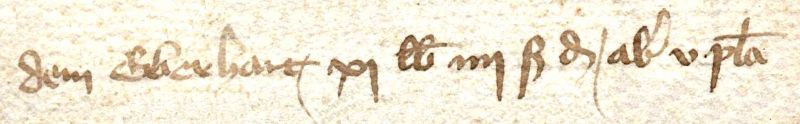 dem Eberhart xi lb iiii ß d / ab v pla